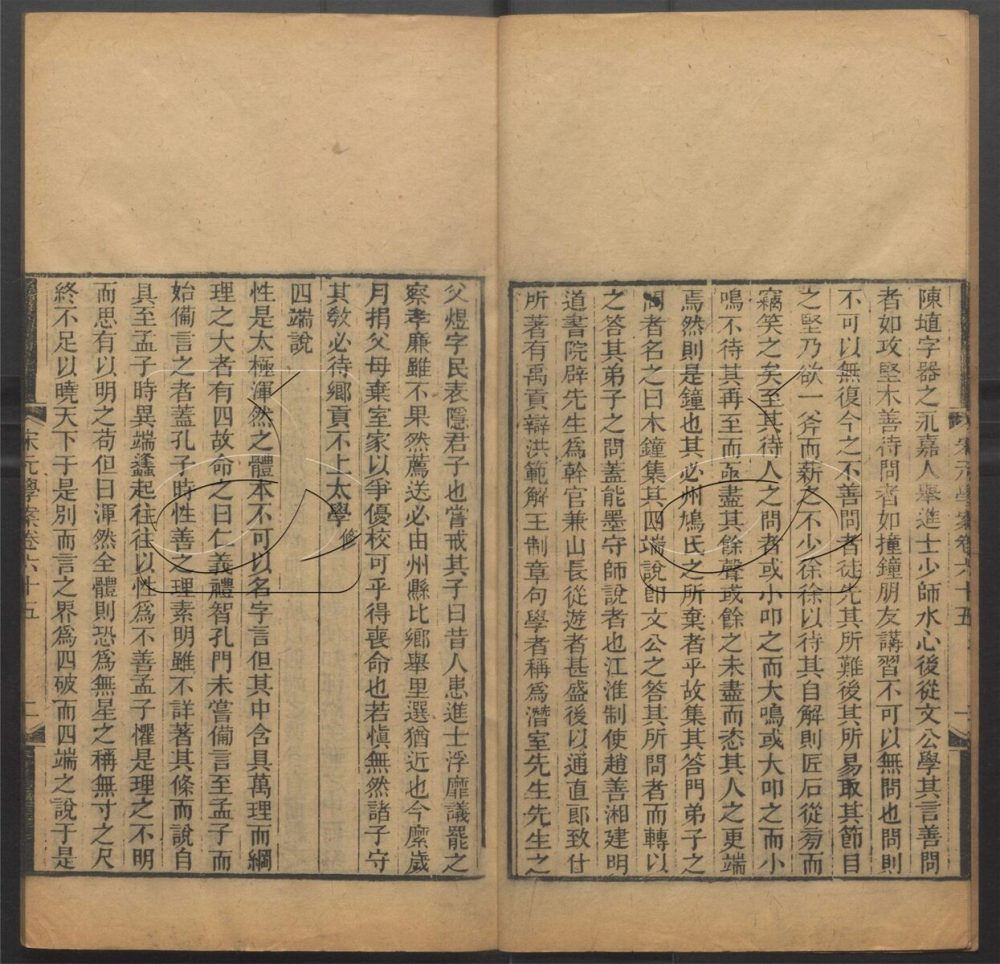 陳埴字器之永嘉人舉進士少師水心後從文公學其言善問
者如攻堅木善待問者如撞鐘朋友講習不可以無問也問則
不可以無復今之不善問者徒先其所難後其所易取其節目
之堅乃欲一斧而薪之不少徐徐以待其自解則匠石從旁而
竊笑之矣至其待人之問者或小叩之而大鳴或大叩之而小
鳴不待其再至而亟盡其餘聲或餘之未盡而恡其人之更端
焉然則是鐘也其必州鳩氏之所棄者乎故集其答門弟子之
問者名之曰木鐘集其四端說卽文公之答其所問者而轉以
之答其弟子之問蓋能墨守師說者也江淮制使趙善湘建明
道書院辟先生爲幹官兼山長從遊者甚盛後以通直郎致仕
所著有禹貢辯洪範解王制章句學者稱爲潛室先生先生之
宋元學案卷六十五
一
父煜字民表隱君子也嘗戒其子曰昔人患進士浮靡議罷之
察孝廉雖不果然薦送必由州縣比鄉舉里選猶近也今縻歲
月捐父母棄室家以爭優校可乎得喪命也若愼無然諸子守
其敎必待鄉貢不上太學修
四端說
性是太極渾然之體本不可以名字言但其中含具萬理而綱
理之大者有四故命之曰仁義禮智孔門未嘗備言至孟子而
始備言之者蓋孔子時性善之理素明雖不詳著其條而說自
具至孟子時異端蠭起往往以性爲不善孟子懼是理之不明
而思有以明之苟但曰渾然全體則恐爲無星之稱無寸之尺
終不足以曉天下于是別而言之界爲四破而四端之說于是
宋元學案卷六十五
二